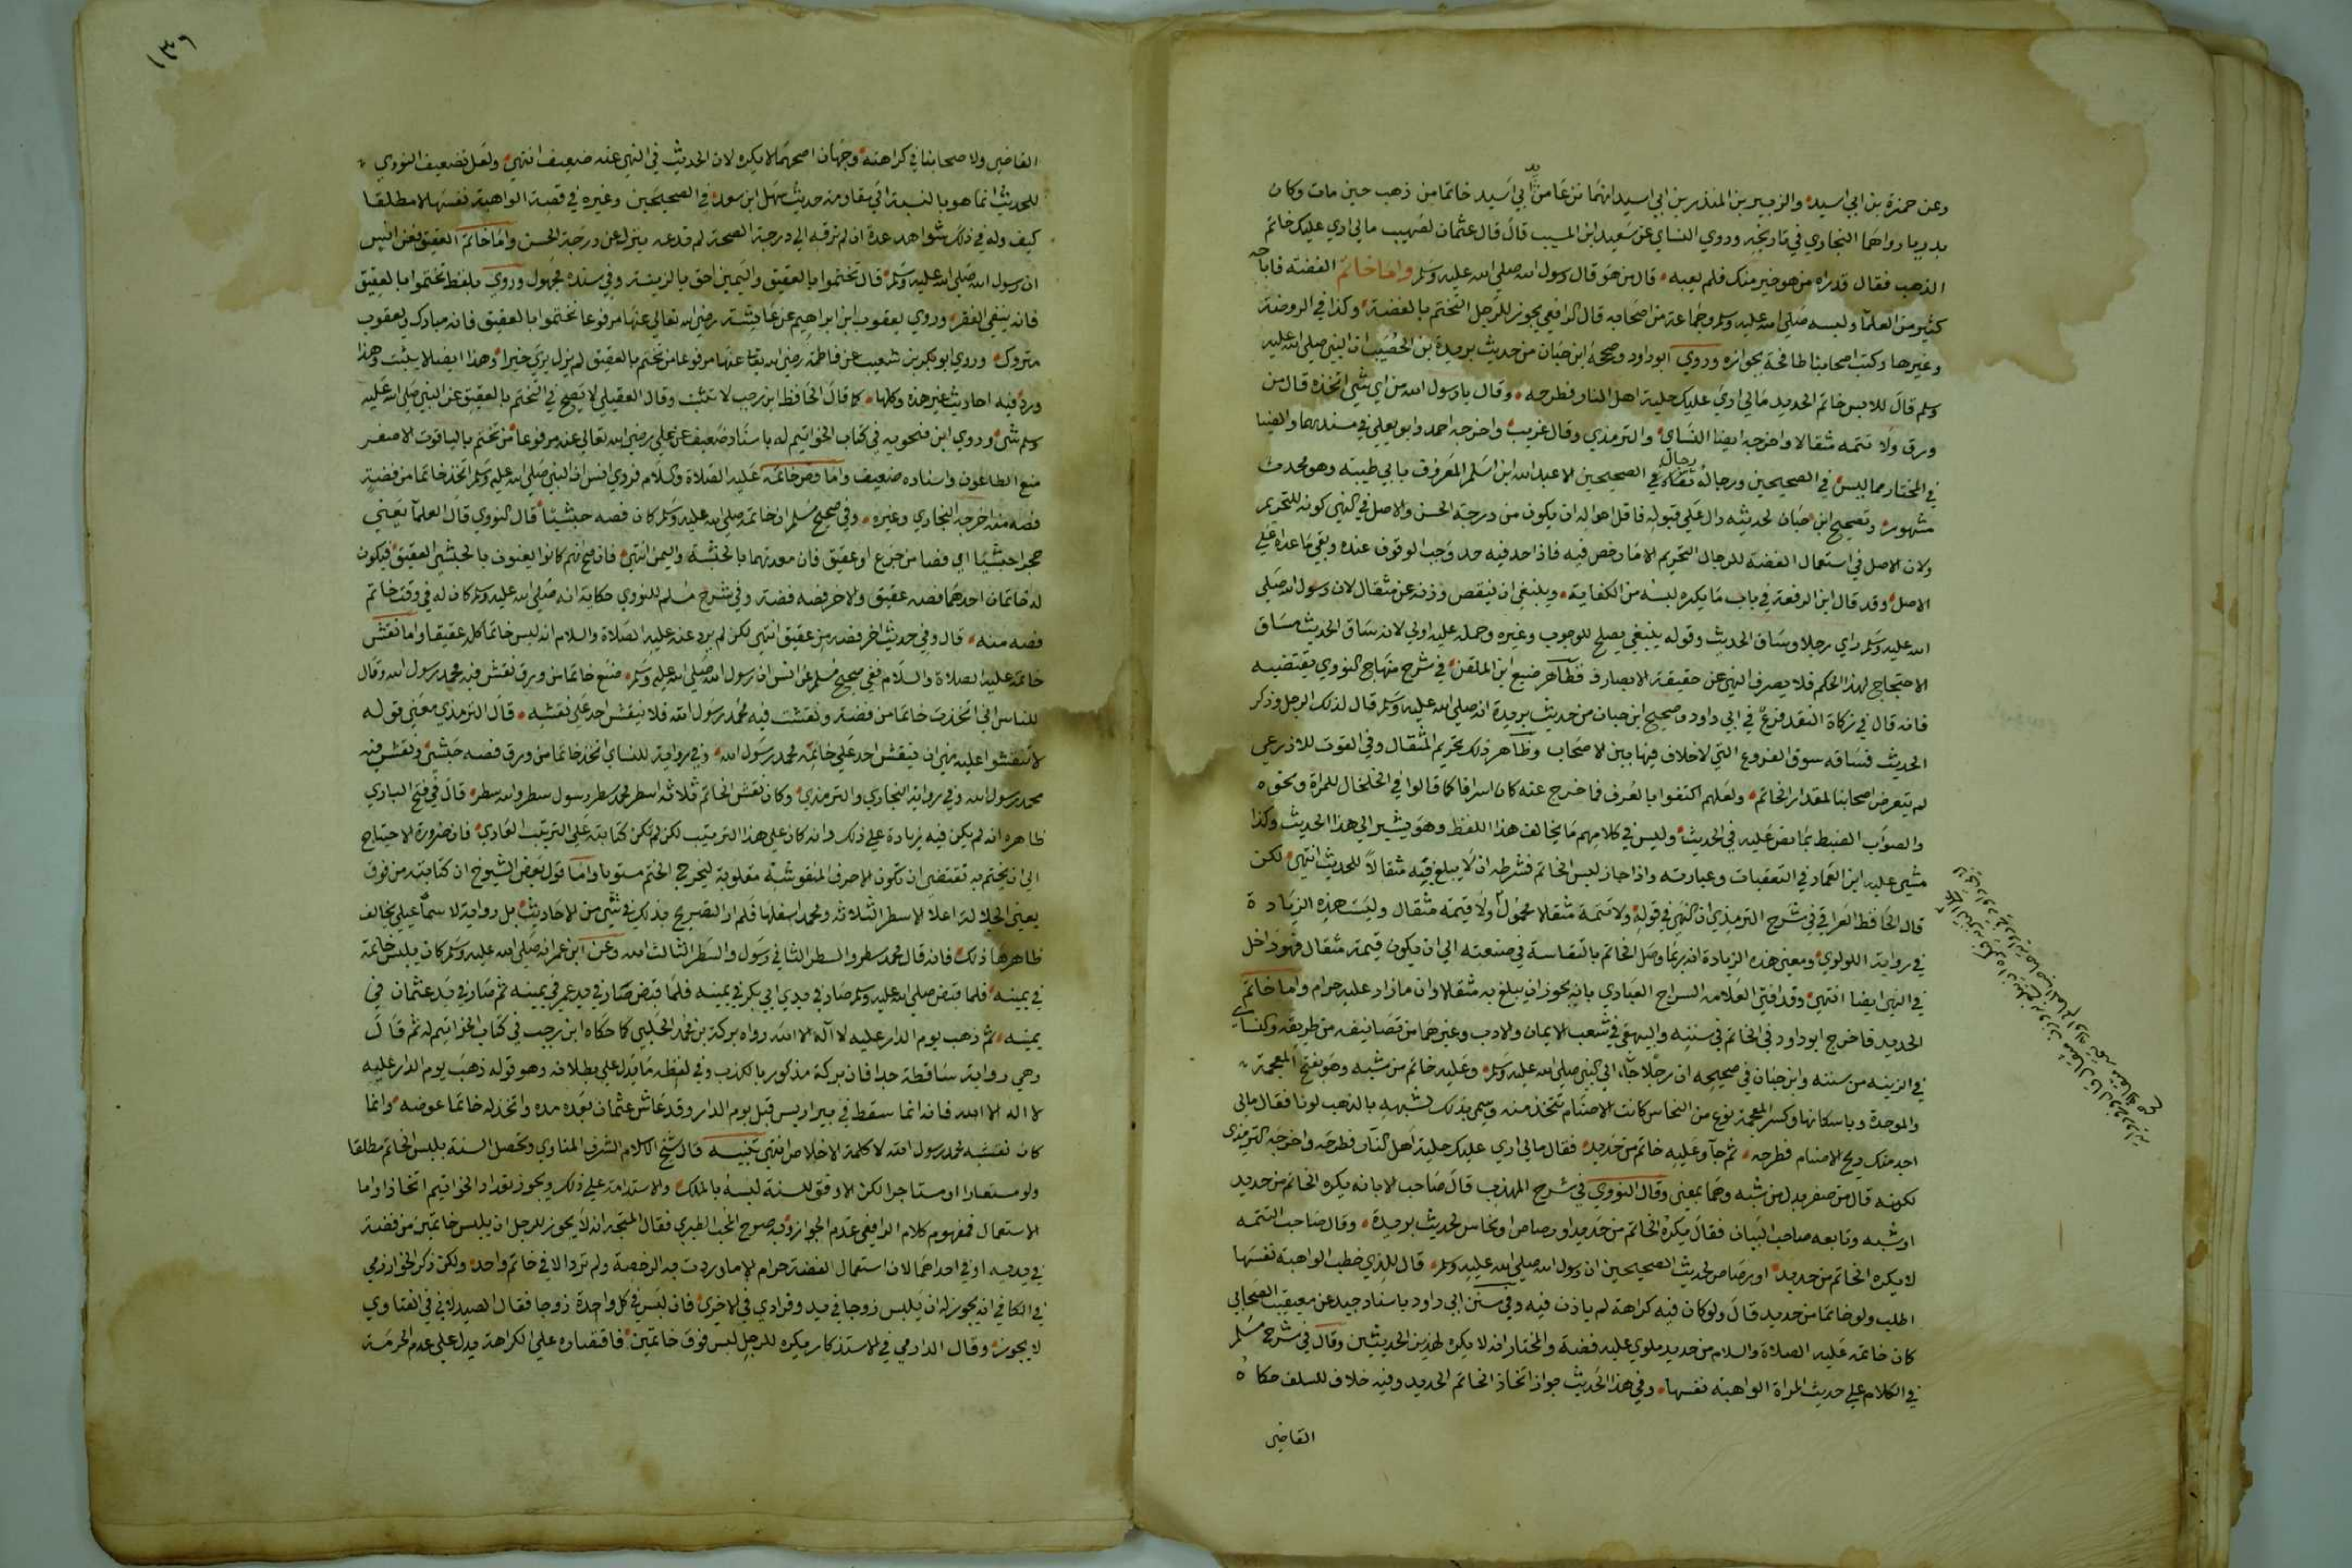 وعن حمزة بن ابي اسيد والزبير بن المنذر بن ابي اسيد انهما نزعا من يد ابي اسيد خاتما من ذهب حين مات وكان
بدريا رواهما البخاري في تاريخه وروي النساي عن سعيد ابن المسيب قال قال عثمان لصهيب ما لي اري عليك خاتم
الذهب فقال قد راه من هو خير منك فلم يعبه قال من هو قال رسول الله صلي الله عليه وسلم واما خاتم الفضة فاباحه
كثير من العلما ولبسه صلي الله عليه وسلم وجماعة من اصحابه قال الرافعي يجوز للرجل التختم بالفضة وكذا في الروضة
وغيرها وكتب اصحابنا طافحة بجوازه وروي ابو داود وصححه ابن حبان من حديث بريدة بن الحصيب ان النبي صلي الله عليه
وسلم قال للابس خاتم الحديد ما لي اري عليك حلية اهل النار فطرحه وقال يا رسول الله من اي شي اتخذه قال من
ورق ولا تتمه مثقالا واخرجه ايضا النساي والترمذي وقال غريب واخرجه احمد وابو يعلي في مسنديهما والضيا
في المختارة مما ليس في الصحيحين ورجاله رجال الصحيحين الا عبد الله ابن اسلم المعروف بابي طيبة وهو محدث
مشهور وتصحيح ابن حبان لحديثه دال علي قبوله فاقل احواله ان يكون من درجة الحسن والاصل في النهي كونه للتحريم
ولان الاصل في استعمال الفضة للرجال التحريم الا ما رخص فيه فاذا حد فيه حد وجب الوقوف عنده وبقي ما عداه علي
الاصل وقد قال ابن الرفعة في باب ما يكره لبسه من الكفاية وينبغي ان ينقص وزنه عن مثقال لان رسول الله صلي
الله عليه وسلم راي رجلا وساق الحديث وقوله ينبغي يصلح للوجوب وغيره وحمله عليه اولي لانه ساق الحديث مساق
الاحتجاج لهذا الحكم فلا يصرف النهي عن حقيقته الا بصارف فظاهر صنيع ابن الملقن في شرح منهاج النووي يقتضيه
فانه قال في زكاة النقد فرع في ابي داود وصحيح ابن حبان من حديث بريدة انه صلي الله عليه وسلم قال لذلك الرجل وذكر
الحديث فساقه سوق الفروع التي لا خلاف فيها بين الاصحاب وظاهر ذلك تحريم المثقال وفي القوت للاذرعي
لم يتعرض اصحابنا لمقدار الخاتم ولعلهم اكتفوا بالعرف فما خرج عنه كان اسرافا كما قالوا في الخلخال للمراة ونحوه
والصواب الضبط بما نص عليه في الحديث وليس في كلامهم ما يخالف هذا اللفظ وهو يشير الي هذا الحديث وكذا
مشي عليه ابن العماد في التعقبات وعبارته واذا جاز لبس الخاتم فشرطه ان لا يبلغ به مثقالا للحديث انتهي لكن
قال الحافظ العراقي في شرح الترمذي ان النهي في قوله ولا تتمه مثقالا محمول ولا قيمته مثقال وليست هذه الزيادة
في رواية اللولوي ومعني هذه الزيادة انه ربما وصل الخاتم بالنفاسة في صنعته الي ان يكون قيمته مثقال فهو داخل
في النهي ايضا انتهي وقد افتي العلامة السراج العبادي بانه يجوز ان يبلغ به مثقالا وان ما زاد عليه حرام واما خاتم
الحديد فاخرج ابو داود في الخاتم في سننه والبيهقي في شعب الايمان والادب وغيرهما من تصانيفه من طريقه والنساي
في الزينه من سننه وابن حبان في صحيحه ان رجلا جاء الي النبي صلي الله عليه وسلم وعليه خاتم من شبه وهو بفتح المعجمة
والموحدة وباسكانها وكسر المعجمة نوع من النحاس كانت الاصنام تتخذ منه وسمي بذلك لشبهه بالذهب لونا فقال مالي
اجد منك ريح الاصنام فطرحه ثم جا وعليه خاتم من حديد فقال مالي اري عليك حلية اهل النار فطرحه واخرجه الترمذي
لكونه قال من صفر بدل من شبه وهما بمعني وقال النووي في شرح المهذب قال صاحب الابانه يكره الخاتم من حديد
او شبه وتابعه صاحب البيان فقال يكره الخاتم من حديد او رصاص او نحاس لحديث بريدة وقال صاحب التتمه
لا يكره الخاتم من حديد او رصاص لحديث الصحيحين ان رسول الله صلي الله عليه وسلم قال للذي خطب الواهبة نفسها
اطلب ولو خاتما من حديد قال ولو كان فيه كراهة لم ياذن فيه وفي سنن ابي داود باسناد جيد عن معيقيب الصحابي
كان خاتمه عليه الصلاة والسلام من حديد ملوي عليه فضة والمختار انه لا يكره لهذين الحديثين وقال في شرح مسلم
في الكلام علي حديث المراة الواهبة نفسها وفي هذا الحديث جواز اتخاذ الخاتم الحديد وفيه خلاف للسلف حكاه
القاضي
١٣٦
القاضي ولاصحابنا في كراهته وجهان اصحهما لا يكره لان الحديث في النهي عنه ضعيف انتهي ولعل تضعيف النووي
للحديث انما هو بالنسبة الي مقاومة حديث سهل ابن سعد في الصحيحين وغيره في قصة الواهبة نفسها لا مطلقا
كيف وله في ذلك شواهد عدة ان لم ترقه الي درجة الصحة لم تدعه ينزل عن درجة الحسن واما خاتم العقيق فعن انس
ان رسول الله صلي الله عليه وسلم قال تختموا بالعقيق واليمين احق بالزينة وفي سنده مجهول وروي بلفظ تختموا بالعقيق
فانه ينفي الفقر وروي يعقوب ابن ابراهيم عن عايشة رضي الله تعالي عنها مرفوعا تختموا بالعقيق فانه مبارك ويعقوب
متروك وروي ابو بكر بن شعيب عن فاطمة رضي الله تعا عنها مرفوعا من تختم بالعقيق لم يزل يري خيرا وهذا ايضا لا يثبت وهذا
ورد فيه احاديث غير هذه وكلها كما قال الحافظ ابن رجب لا تثبت وقال العقيلي لا يصح في التختم بالعقيق عن النبي صلي الله عليه
وسلم شي وروي ابن فنجويه في كتاب الخواتيم له باسناد ضعيف عن علي رضي الله تعالي عنه مرفوعا من تختم بالياقوت الاصفر
منع الطاعون واسناده ضعيف واما فص خاتمه عليه الصلاة والسلام فروي انس ان النبي صلي الله عليه وسلم اتخذ خاتما من فضة
فصه منه اخرجه البخاري وغيره وفي صحيح مسلم ان خاتمه صلي الله عليه وسلم كان فصه حبشيا قال النووي قال العلما يعني
حجرا حبشيا اي فصا من جزع او عقيق فان معدنهما بالحبشة واليمن انتهي فان صح انهم كانوا يعنون بالحبشي العقيق فيكون
له خاتمان احدهما فصه عقيق والاخر فصه فضة وفي شرح مسلم للنووي حكاية انه صلي الله عليه وسلم كان له في وقت خاتم
فصه منه قال وفي حديث اخر فصه من عقيق انتهي لكن لم يرد عنه عليه الصلاة والسلام انه لبس خاتما كله عقيقا واما نقش
خاتمه عليه الصلاة والسلام ففي صحيح مسلم عن انس ان رسول الله صلي الله عليه وسلم صنع خاتما من ورق نقش فيه محمد رسول الله وقال
للناس اني اتخذت خاتما من فضة ونقشت فيه محمد رسول الله فلا ينقش احد علي نقشه قال الترمذي معني قوله
لا تنقشوا عليه نهي ان ينقش احد علي خاتمه محمد رسول الله وفي رواية للنساي اتخذ خاتما من ورق فصه حبشي ونقش فيه
محمد رسول الله وفي رواية البخاري والترمذي وكان نقش الخاتم ثلاثة اسطر محمد سطر ورسول سطر والله سطر قال في فتح الباري
ظاهره انه لم يكن فيه زيادة علي ذلك وانه كان علي هذا الترتيب لكن لم تكن كتابته علي الترتيب العادي فان ضرورة الاحتياج
الي ان يختم به تقتضي ان تكون الاحرف المنقوشة مقلوبة ليخرج الختم مستويا واما قول بعض الشيوخ ان كتابته من فوق
يعني الجلالة اعلا الاسطر الثلاثة ومحمد اسفلها فلم ار التصريح بذلك في شي من الاحاديث بل رواية الاسماعيلي تخالف
ظاهرها ذلك فانه قال محمد سطر والسطر الثاني رسول والسطر الثالث الله وعن ابن عمر انه صلي الله عليه وسلم كان يلبس خاتمه
في يمينه فلما قبض صلي الله عليه وسلم صار في يدي ابي بكر في يمينه فلما قبض صار في يد عمر في يمينه ثم صار في يد عثمان في
يمينه ثم ذهب يوم الدار عليه لا اله الا الله رواه بركة بن محمد الحلبي كما حكاه ابن رجب في كتاب الخواتيم له ثم قال
وهي رواية ساقطة جدا فان بركة مذكور بالكذب وفي لفظه ما يدل علي بطلانه وهو قوله ذهب يوم الدار عليه
لا اله الا الله فانه انما سقط في بير اريس قبل يوم الدار وقد عاش عثمان بعده مدة واتخذ له خاتما عوضه وانما
كان نقشه محمد رسول الله لا كلمة الاخلاص انتهي تنبيه قال شيخ الاسلام الشرف المناوي وتحصل السنة بلبس الخاتم مطلقا
ولو مستعارا او مستاجرا لكن الاوفق للسنة لبسه بالملك والاستدامة علي ذلك ويجوز تعداد الخواتيم اتخاذا واما
الاستعمال فمفهوم كلام الرافعي عدم الجواز وبه صرح المحب الطبري فقال المتجه انه لا يجوز للرجل ان يلبس خاتمين من فضة
في يديه او في احداهما لان استعمال الفضة حرام الا ما وردت به الرخصة ولم ترد الا في خاتم واحد ولكن ذكر الخوارزمي
في الكافي انه يجوز له ان يلبس زوجا في يد وفرادي في الاخري فان لبس في كل واحدة زوجا فقال الصيدلاني في الفتاوي
لا يجوز وقال الدارمي في الاستذكار ويكره للرجل لبس فوق خاتمين فاقتصاره علي الكراهة يدل علي عدم الحرمة